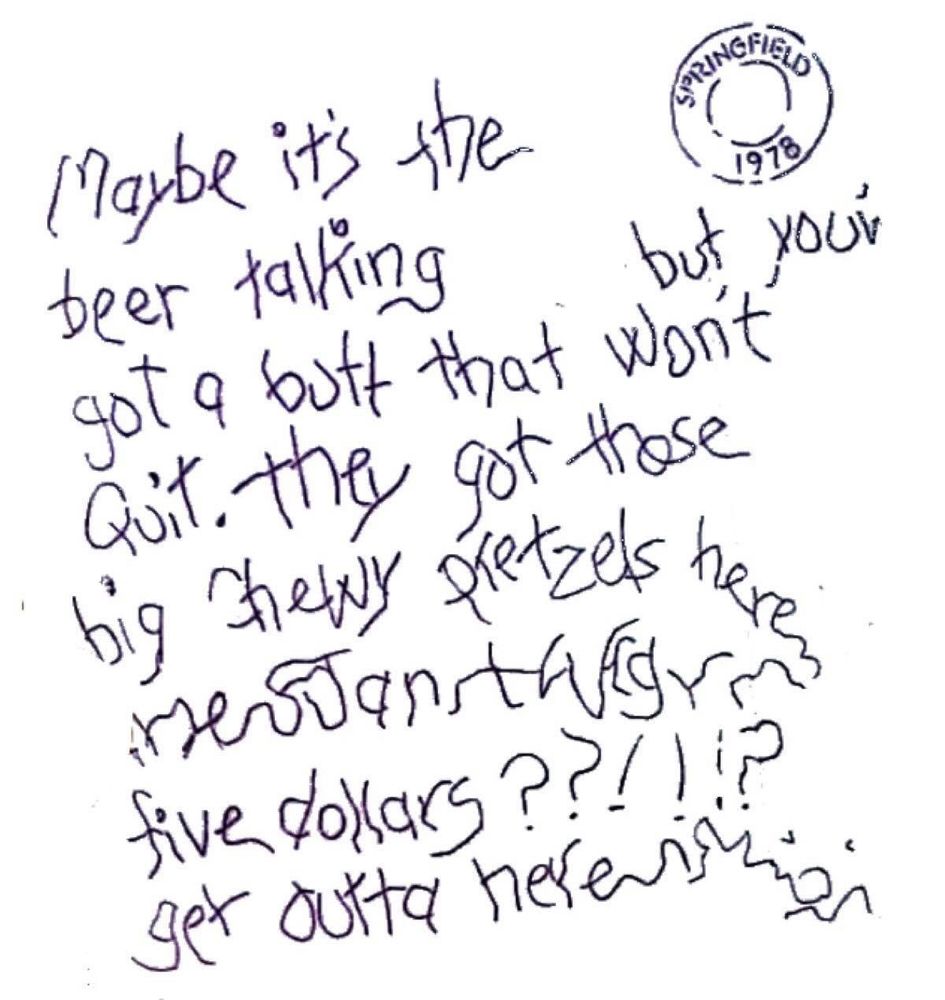 SPRINGFIELD
1978
Maybe it's the
beer talking but you
got a butt that won't
Quit. they got those
big chewy pretzels here
five dollars??!!!?
get outta here